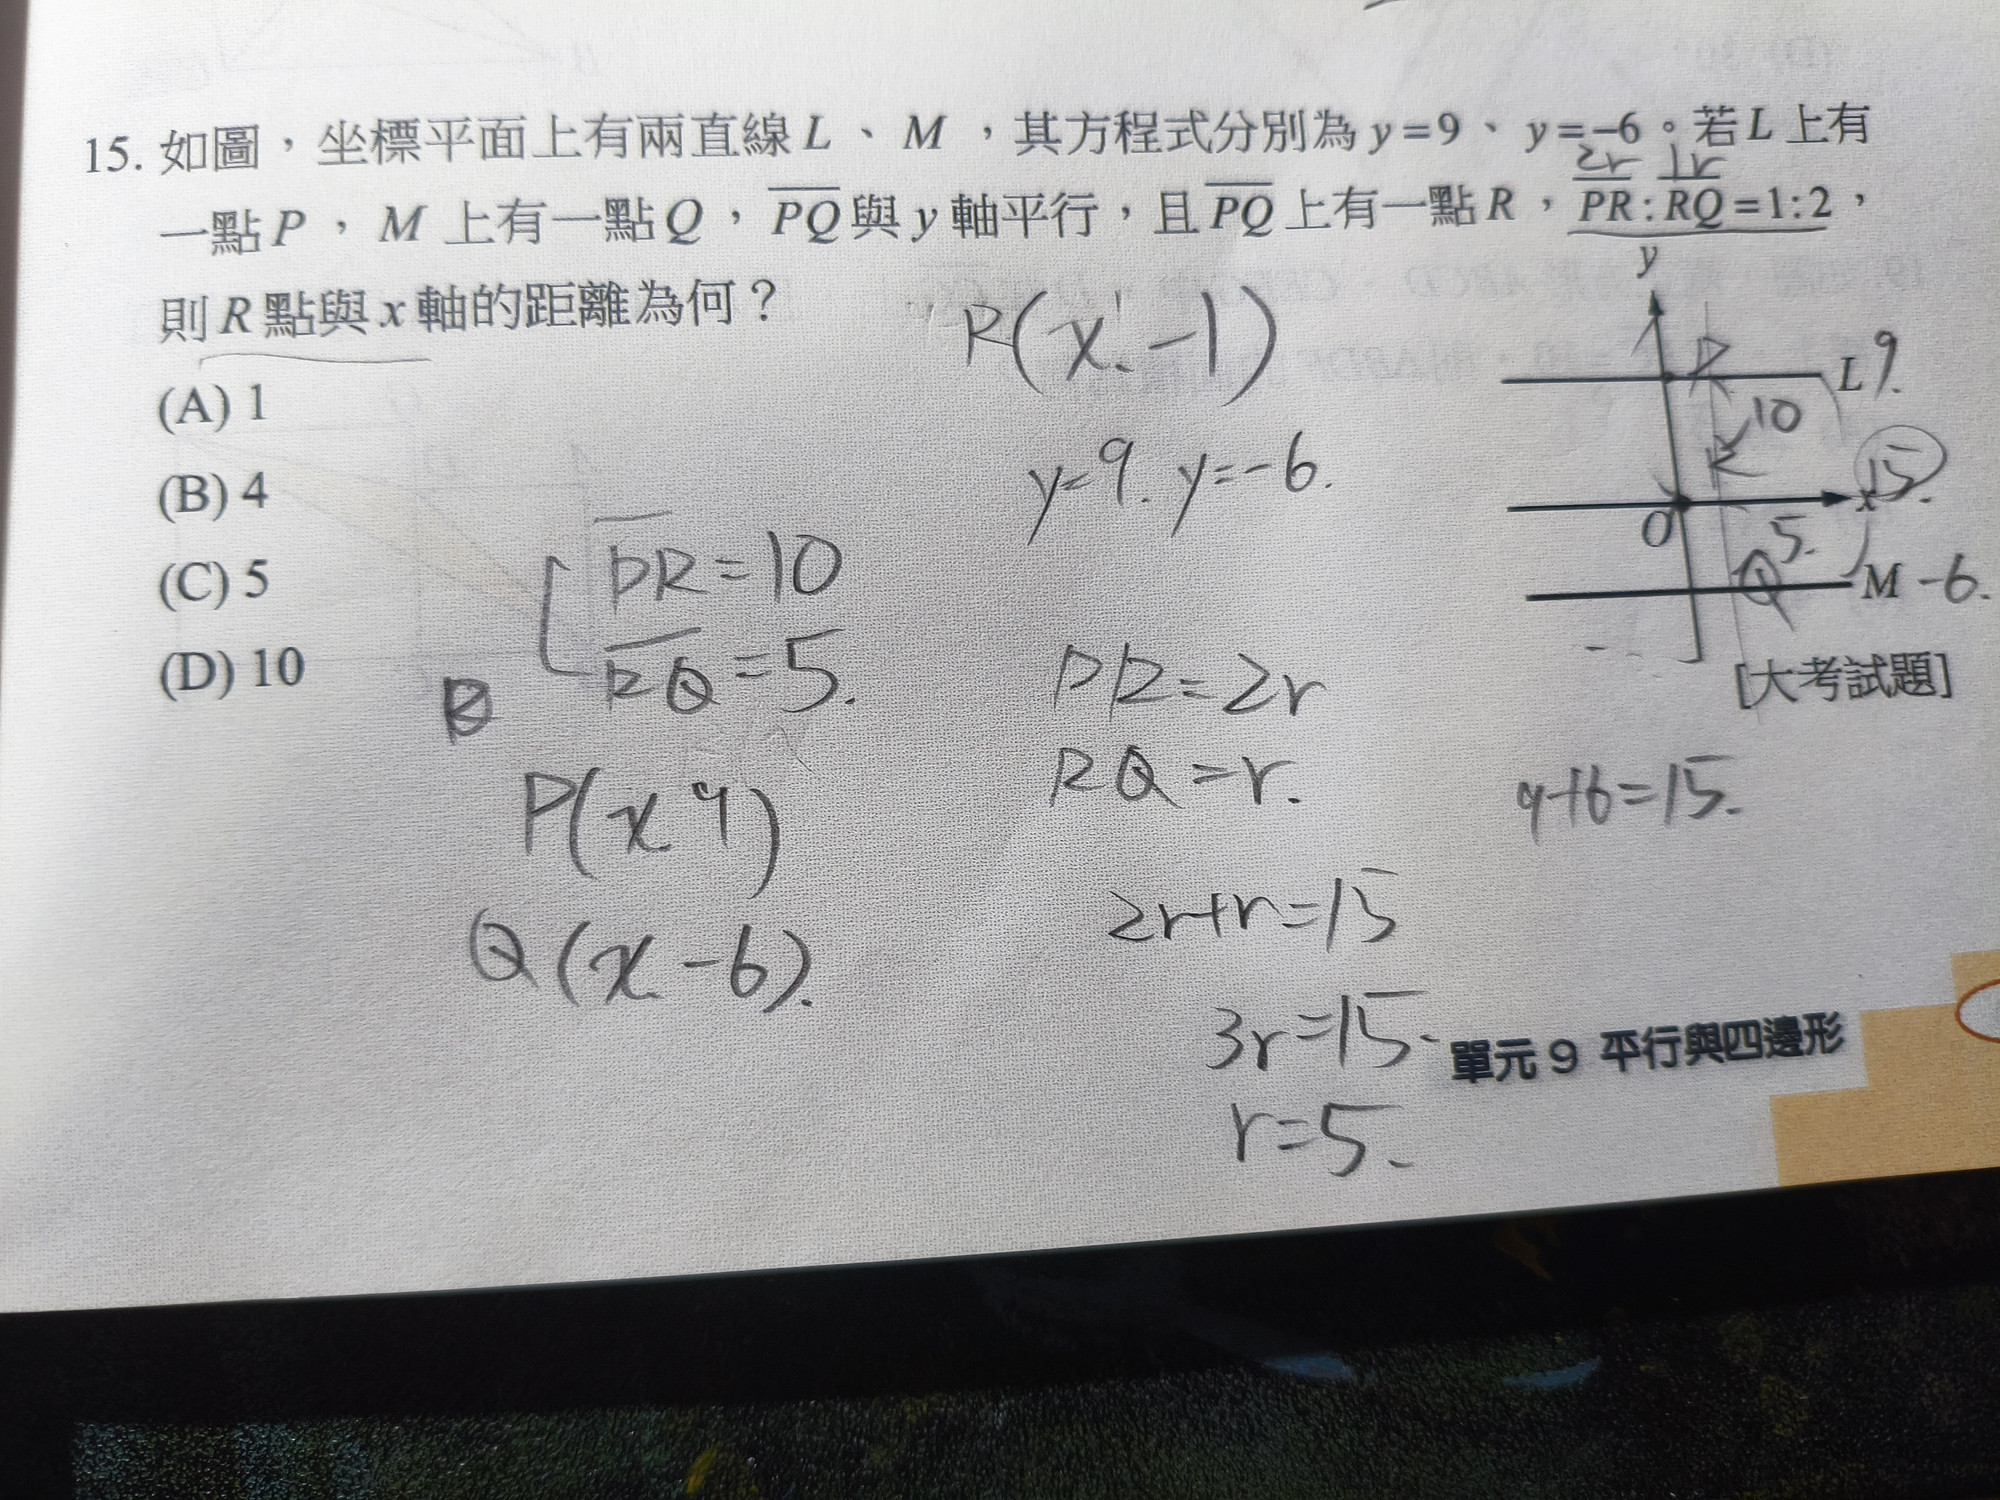 15. 如圖，坐標平面上有兩直線 L、M，其方程式分別為 y=9、y=-6。若 L 上有
2r 1r
一點 P，M 上有一點 Q，PQ 與 y 軸平行，且 PQ 上有一點 R，PR:RQ=1:2，
則 R 點與 x 軸的距離為何？
(A) 1
(B) 4
(C) 5
(D) 10
R(x, -1)
y=9. y=-6.
PR=10
RQ=5.
P(x 9)
Q(x -6).
PR=2r
RQ=r.
2r+r=15
3r=15.
r=5.
9+6=15.
y
P
L 9.
10
R
15.
x
O
5.
Q
M -6.
[大考試題]
單元 9 平行與四邊形